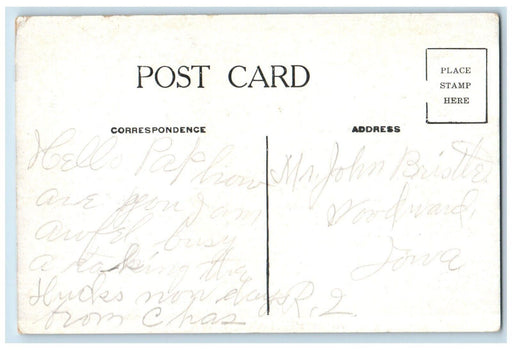 POST CARD
PLACE
STAMP
HERE
CORRESPONDENCE
ADDRESS
Hello Pa how
are you I am
awfel busy
a taking the
Hucks now days
from Chas
Mr. John
Woodward,
Iowa
R. 2.